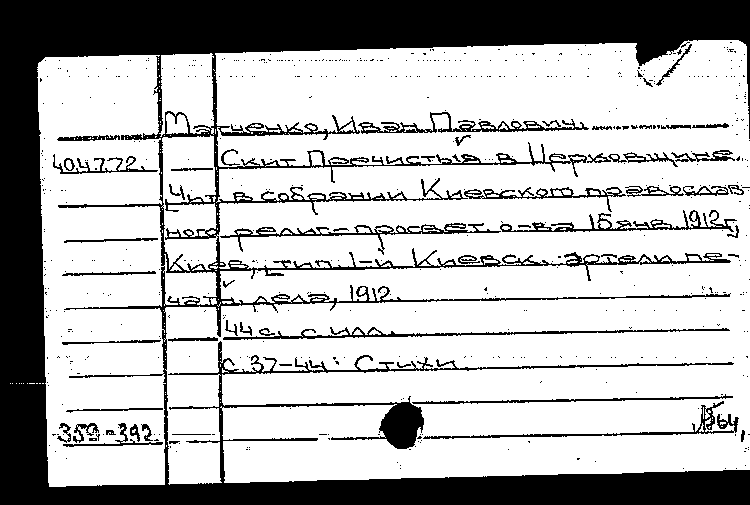 Матченко, Иван Павлович.
40.4.7.72. Скит Пречистыя в Церковщине.
Чит. в собрании Киевского православ-
ного религ.-просвет. о-ва 15 янв. 1912 г.,
Киев, тип. 1-й Киевск. артели пе-
чатн. дела, 1912.
44 с. с илл.
с. 37-44: Стихи.
359-392
64,